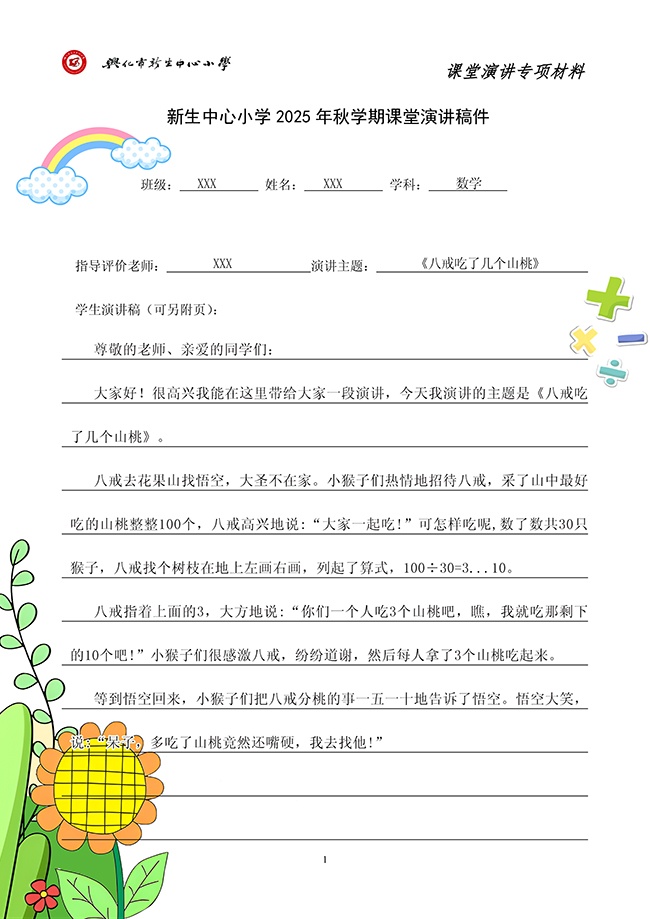 興化市新生中心小學
课堂演讲专项材料
新生中心小学 2025 年秋学期课堂演讲稿件
班级： XXX 姓名： XXX 学科： 数学
指导评价老师： XXX 演讲主题： 《八戒吃了几个山桃》
学生演讲稿（可另附页）：
尊敬的老师、亲爱的同学们：
大家好！很高兴我能在这里带给大家一段演讲，今天我演讲的主题是《八戒吃
了几个山桃》。
八戒去花果山找悟空，大圣不在家。小猴子们热情地招待八戒，采了山中最好
吃的山桃整整100个，八戒高兴地说：“大家一起吃！”可怎样吃呢,数了数共30只
猴子，八戒找个树枝在地上左画右画，列起了算式，100÷30=3...10。
八戒指着上面的3，大方地说：“你们一个人吃3个山桃吧，瞧，我就吃那剩下
的10个吧！”小猴子们很感激八戒，纷纷道谢，然后每人拿了3个山桃吃起来。
等到悟空回来，小猴子们把八戒分桃的事一五一十地告诉了悟空。悟空大笑，
说：“呆子，多吃了山桃竟然还嘴硬，我去找他！”
1